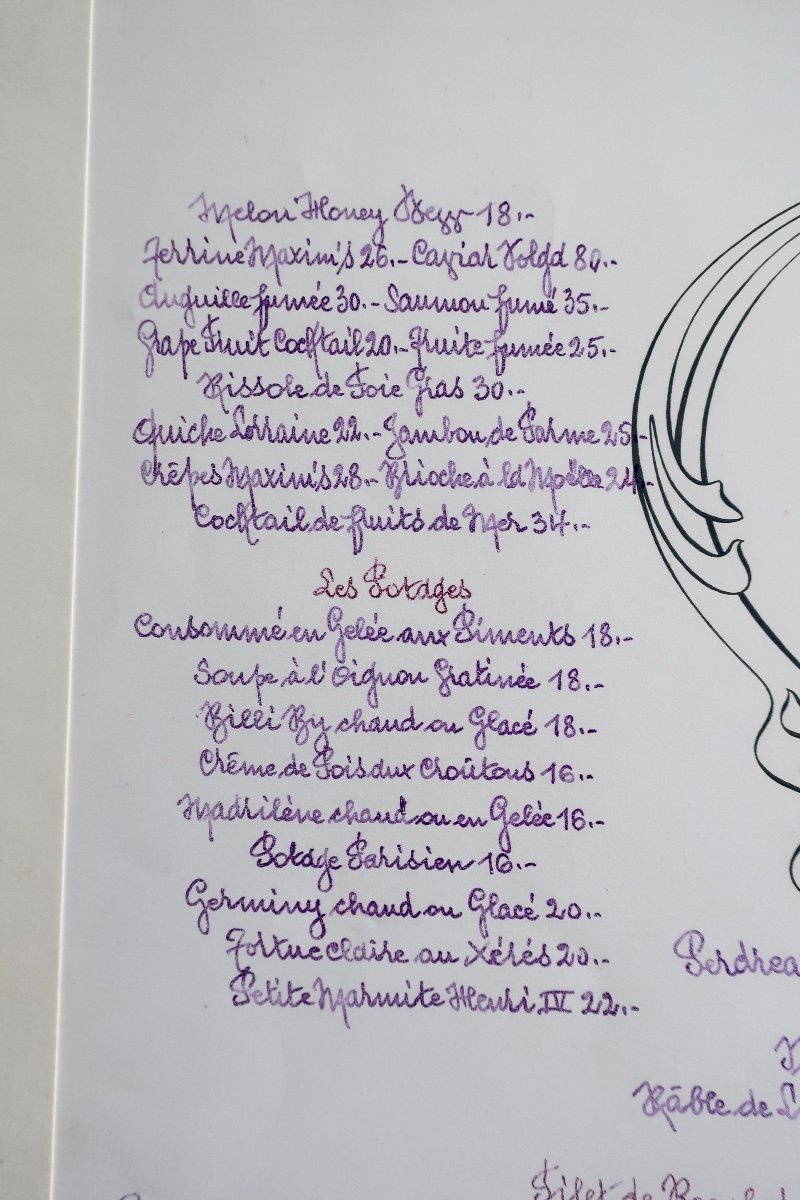 Melon Honey Dezz 18.-
Terrine Maxim's 26.- Caviar Volga 80.-
Anguille fumée 30.- Saumon fumé 35.-
Grape Fruit Cocktail 20.- Truite fumée 25.-
Rissole de Foie Gras 30.-
Quiche Lorraine 22.- Jambon de Parme 25.-
Crêpes Maxim's 28.- Brioche à la Moëlle 24.-
Cocktail de fruits de Mer 34.-
Les Potages
Consommé en Gelée aux Piments 18.-
Soupe à l'Oignon Gratinée 18.-
Billi By chaud ou Glacé 18.-
Crême de Pois aux Croûtons 16.-
Madrilène chaud ou en Gelée 16.-
Potage Parisien 16.-
Germiny chaud ou Glacé 20.-
Tortue claire au Xérés 20.-
Petite Marmite Henri IV 22.-
Perdrea
Râble de L
Filet de